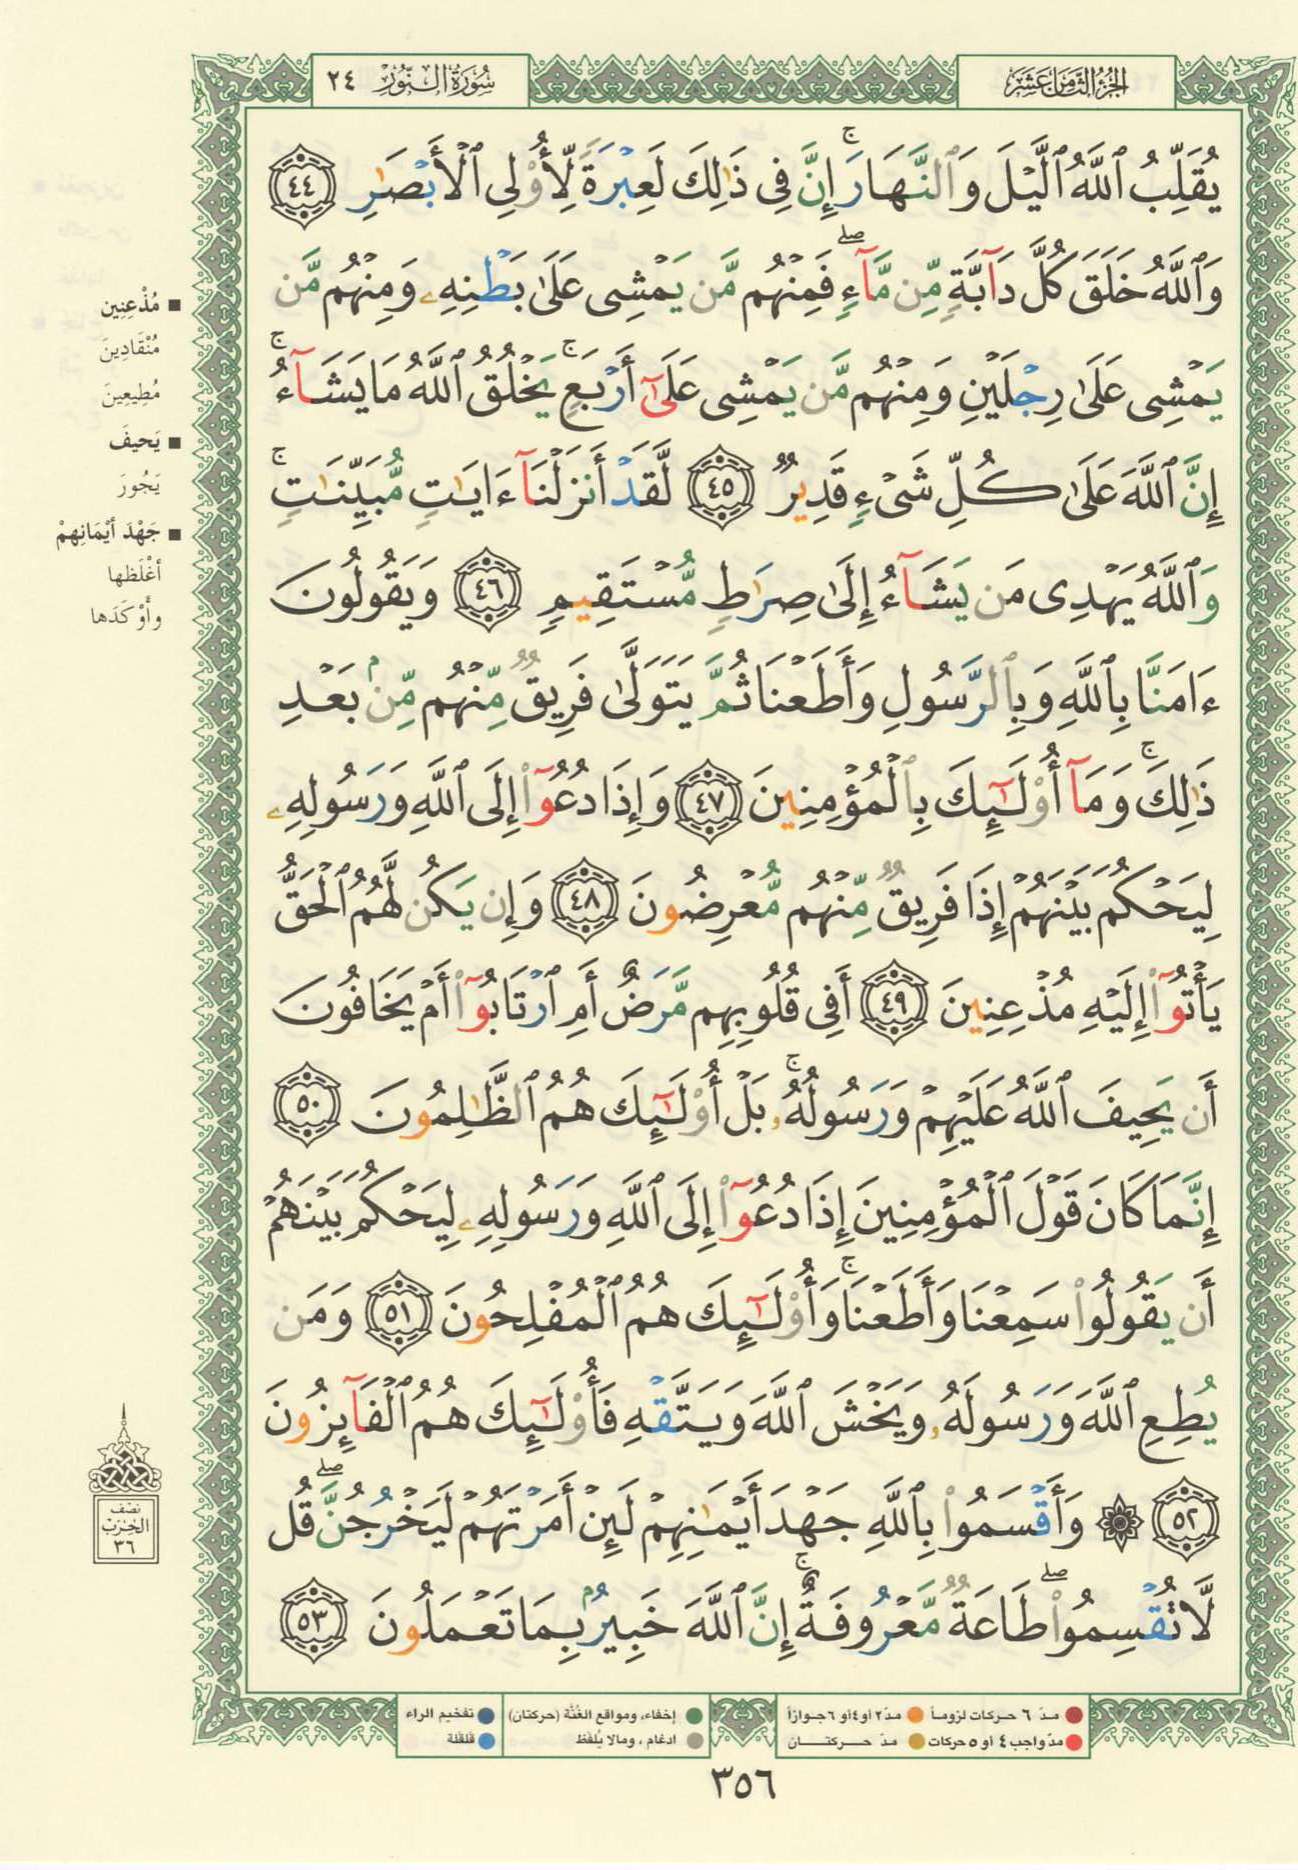 الجزء الثامن عشر
سورة النور ٢٤
يُقَلِّبُ ٱللَّهُ ٱلَّيۡلَ وَٱلنَّهَارَۚ إِنَّ فِى ذَٰلِكَ لَعِبۡرَةً لِّأُوْلِى ٱلۡأَبۡصَٰرِ ٤٤
وَٱللَّهُ خَلَقَ كُلَّ دَآبَّةٍ مِّن مَّآءٍۖ فَمِنۡهُم مَّن يَمۡشِى عَلَىٰ بَطۡنِهِۦ وَمِنۡهُم مَّن
يَمۡشِى عَلَىٰ رِجۡلَيۡنِ وَمِنۡهُم مَّن يَمۡشِى عَلَىٰٓ أَرۡبَعٍۚ يَخۡلُقُ ٱللَّهُ مَا يَشَآءُۚ
إِنَّ ٱللَّهَ عَلَىٰ كُلِّ شَىۡءٍ قَدِيرٌ ٤٥ لَّقَدۡ أَنزَلۡنَآ ءَايَٰتٍ مُّبَيِّنَٰتٍۚ
وَٱللَّهُ يَهۡدِى مَن يَشَآءُ إِلَىٰ صِرَٰطٍ مُّسۡتَقِيمٍ ٤٦ وَيَقُولُونَ
ءَامَنَّا بِٱللَّهِ وَبِٱلرَّسُولِ وَأَطَعۡنَا ثُمَّ يَتَوَلَّىٰ فَرِيقٌ مِّنۡهُم مِّنۢ بَعۡدِ
ذَٰلِكَۚ وَمَآ أُوْلَٰٓئِكَ بِٱلۡمُؤۡمِنِينَ ٤٧ وَإِذَا دُعُوٓاْ إِلَى ٱللَّهِ وَرَسُولِهِۦ
لِيَحۡكُمَ بَيۡنَهُمۡ إِذَا فَرِيقٌ مِّنۡهُم مُّعۡرِضُونَ ٤٨ وَإِن يَكُن لَّهُمُ ٱلۡحَقُّ
يَأۡتُوٓاْ إِلَيۡهِ مُذۡعِنِينَ ٤٩ أَفِى قُلُوبِهِم مَّرَضٌ أَمِ ٱرۡتَابُوٓاْ أَمۡ يَخَافُونَ
أَن يَحِيفَ ٱللَّهُ عَلَيۡهِمۡ وَرَسُولُهُۥۚ بَلۡ أُوْلَٰٓئِكَ هُمُ ٱلظَّٰلِمُونَ ٥٠
إِنَّمَا كَانَ قَوۡلَ ٱلۡمُؤۡمِنِينَ إِذَا دُعُوٓاْ إِلَى ٱللَّهِ وَرَسُولِهِۦ لِيَحۡكُمَ بَيۡنَهُمۡ
أَن يَقُولُواْ سَمِعۡنَا وَأَطَعۡنَاۚ وَأُوْلَٰٓئِكَ هُمُ ٱلۡمُفۡلِحُونَ ٥١ وَمَن
يُطِعِ ٱللَّهَ وَرَسُولَهُۥ وَيَخۡشَ ٱللَّهَ وَيَتَّقۡهِ فَأُوْلَٰٓئِكَ هُمُ ٱلۡفَآئِزُونَ
٥٢ ۞ وَأَقۡسَمُواْ بِٱللَّهِ جَهۡدَ أَيۡمَٰنِهِمۡ لَئِنۡ أَمَرۡتَهُمۡ لَيَخۡرُجُنَّۖ قُل
لَّا تُقۡسِمُواْۖ طَاعَةٌ مَّعۡرُوفَةٌۚ إِنَّ ٱللَّهَ خَبِيرُۢ بِمَا تَعۡمَلُونَ ٥٣
■ مُذْعِنِين
مُنْقَادِينَ
مُطِيعِينَ
■ يَحيفَ
يَجُورَ
■ جَهْدَ أيْمَانِهمْ
أغْلَظها
وأَوْكَدَها
نصف
الحزب
٣٦
مدّ ٦ حركات لزوماً
مدّ ٢ أو ٤ أو ٦ جوازاً
مدّ واجب ٤ أو ٥ حركات
مدّ حركتان
إخفاء، ومواقع الغُنَّة (حركتان)
ادغام ، ومالا يُلفَظ
تفخيم الراء
قلقلة
٣٥٦